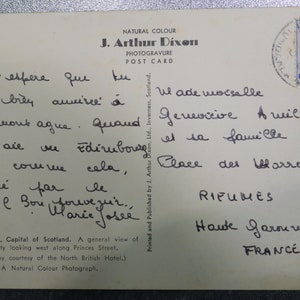 NATURAL COLOUR
J. Arthur Dixon
PHOTOGRAVURE
POST CARD
espère que tu
bien amusée à
montagne. Quand
Edimbourg
comme cela,
par le
Bon souvenir.
Marie José
, Capital of Scotland. A general view of
ty looking west along Princes Street.
by courtesy of the North British Hotel.)
A Natural Colour Photograph.
Printed and Published by J. Arthur Dixon, Ltd., Inverness, Scotland.
Mademoiselle
Geneviève
et sa famille
Place des
RIEUMES
Haute Garonne
FRANCE